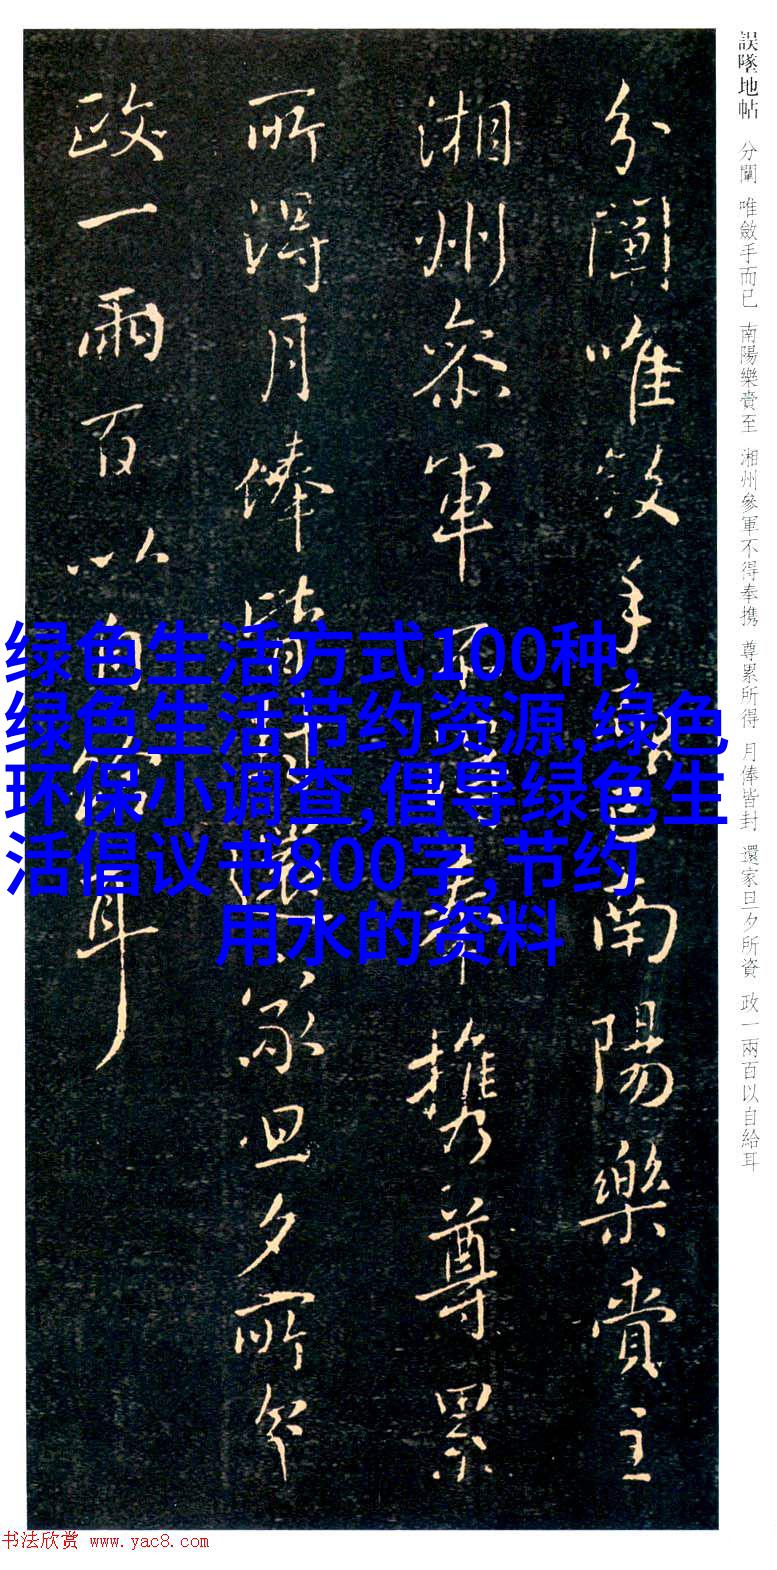 誤墜地帖 分闡 唯斂手而已 南陽樂賁至 湘州參軍不得奉携 尊累所得 月俸皆封 還家旦夕所資 政一兩百以自給耳
分闡唯斂手而已南陽樂賁至
湘州参軍不得奉携尊累
所得月俸皆封還家旦夕所資
政一兩百以自給耳
绿色生活方式100种,
绿色生活节约资源,绿色
环保小调查,倡导绿色生
活倡议书800字,节约
用水的资料
书法欣赏 www.yac8.com